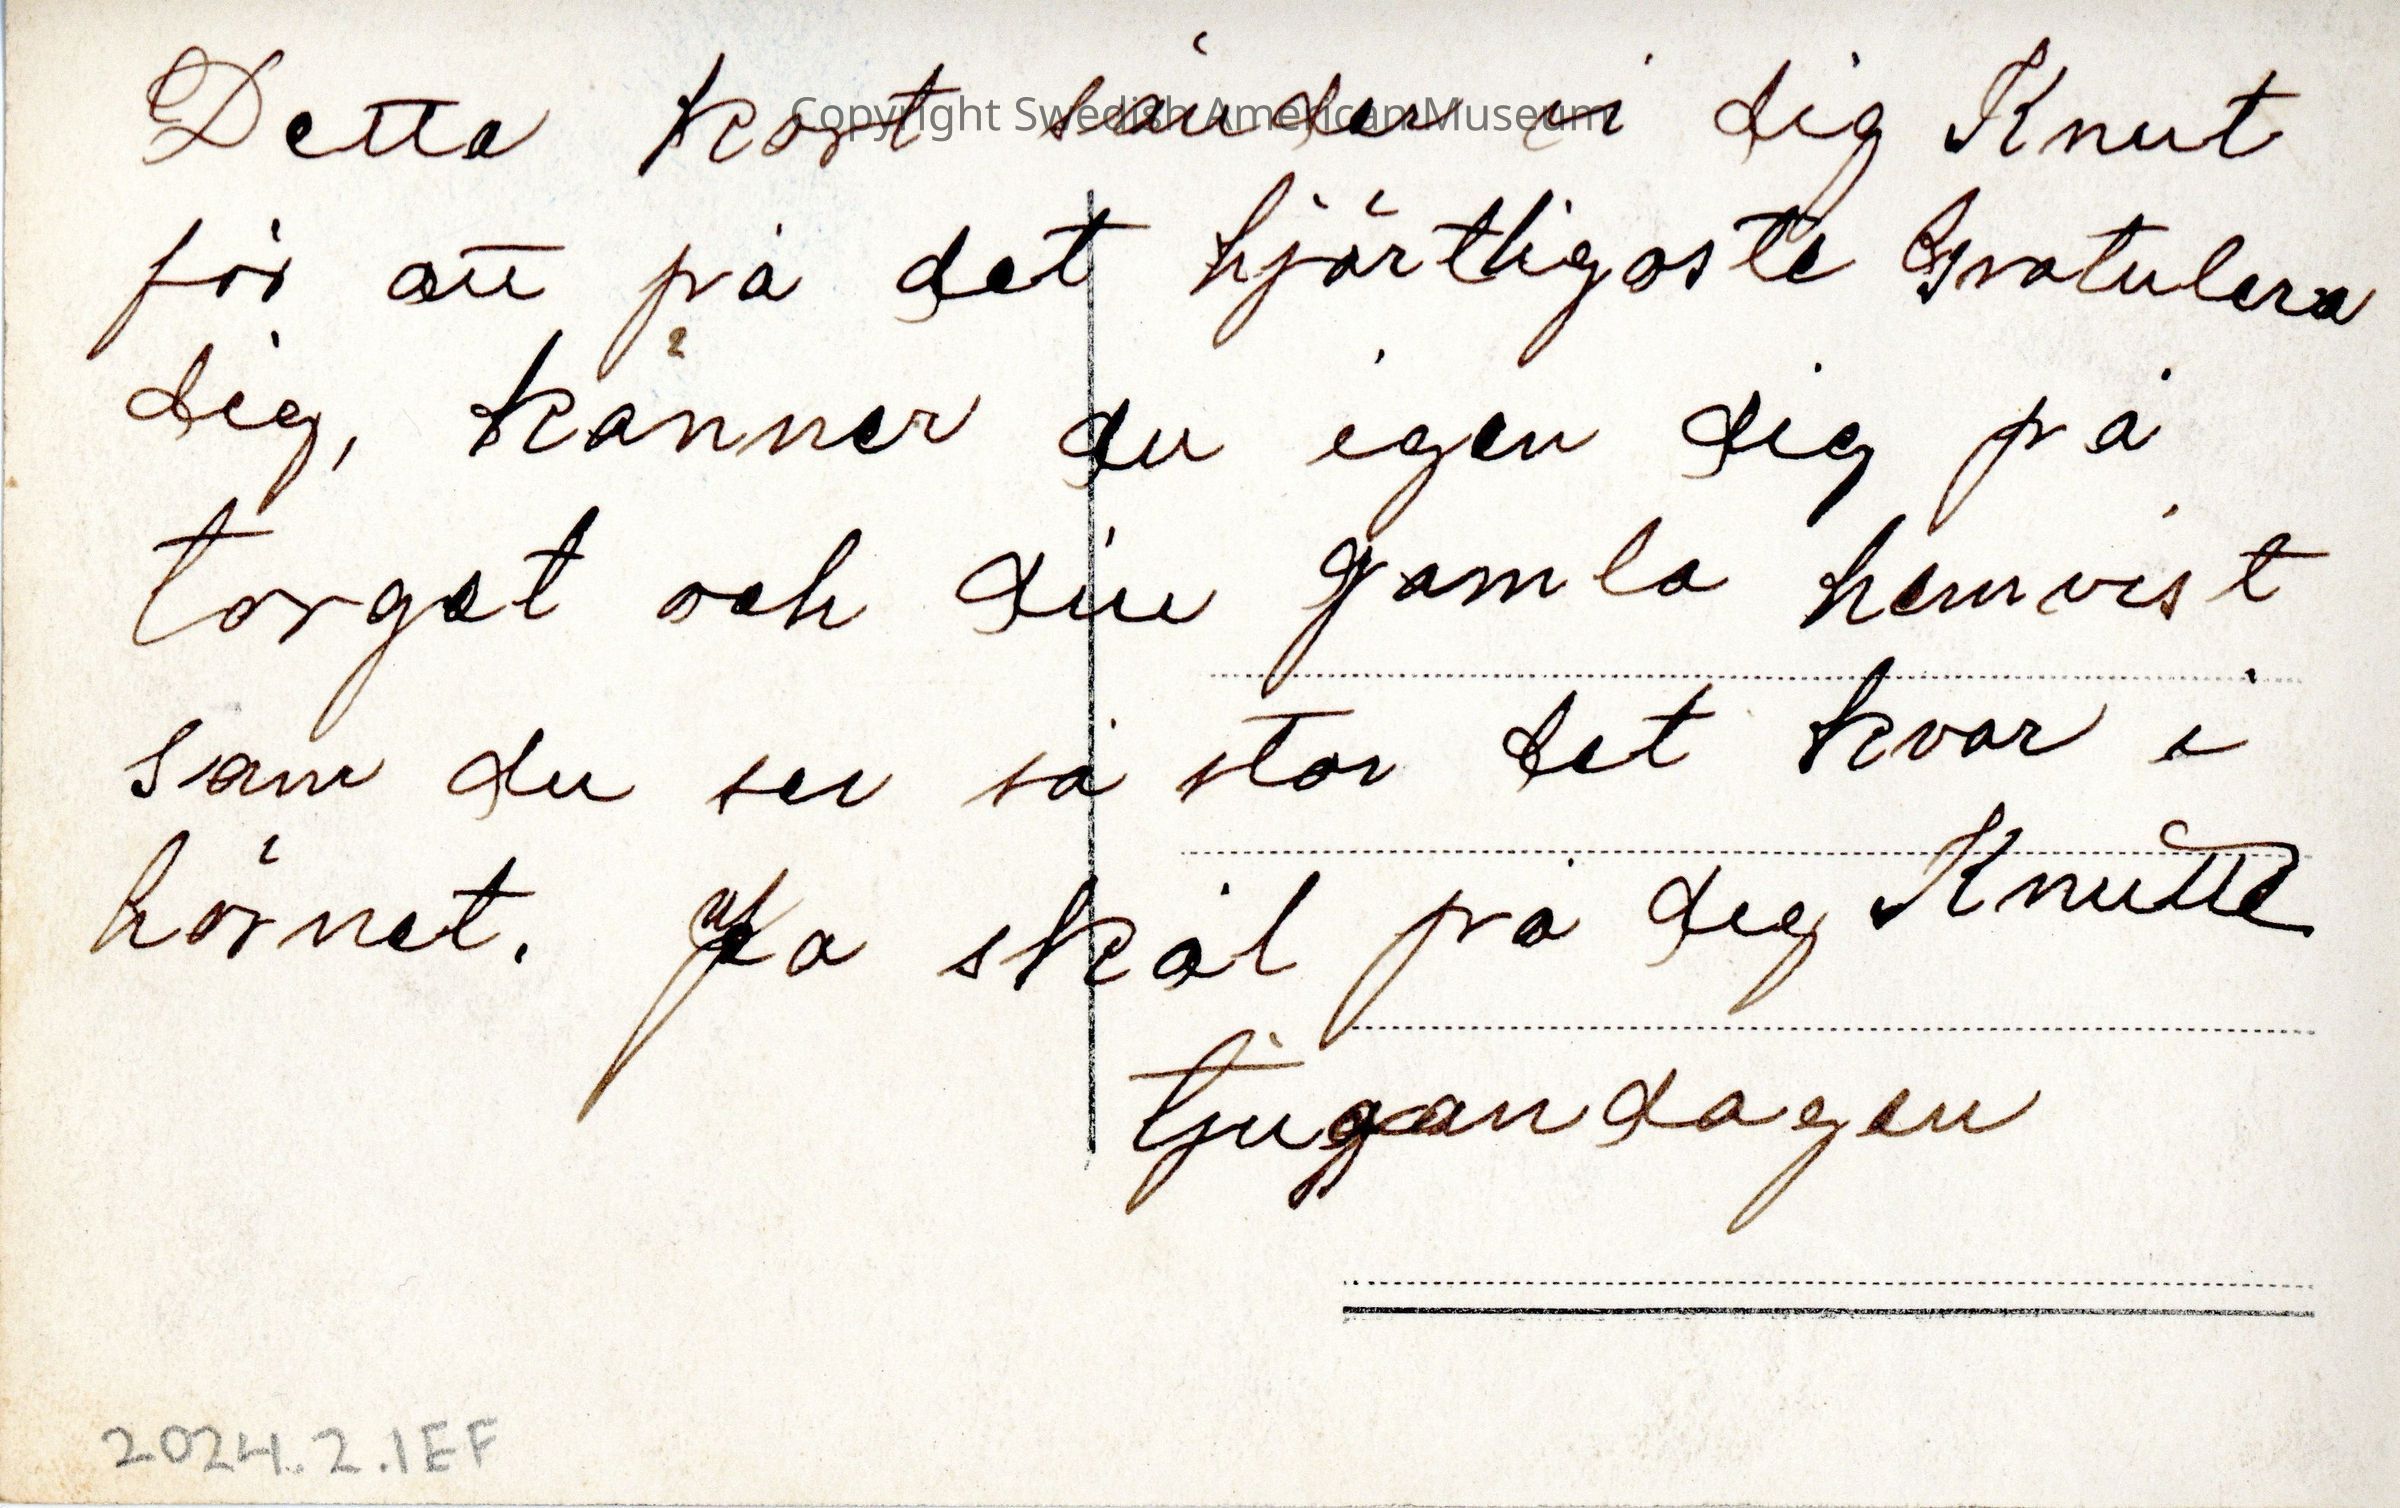 Detta kort sänder vi dig Knut
Copyright Swedish American Museum
för att på det hjärtligaste Gratulera
dig, känner du igen dig på
torget och din gamla hemvist
som du ser så står det kvar i
hörnet. Ja skål på dig Knutte
tjugandagen
2024.2.1EF